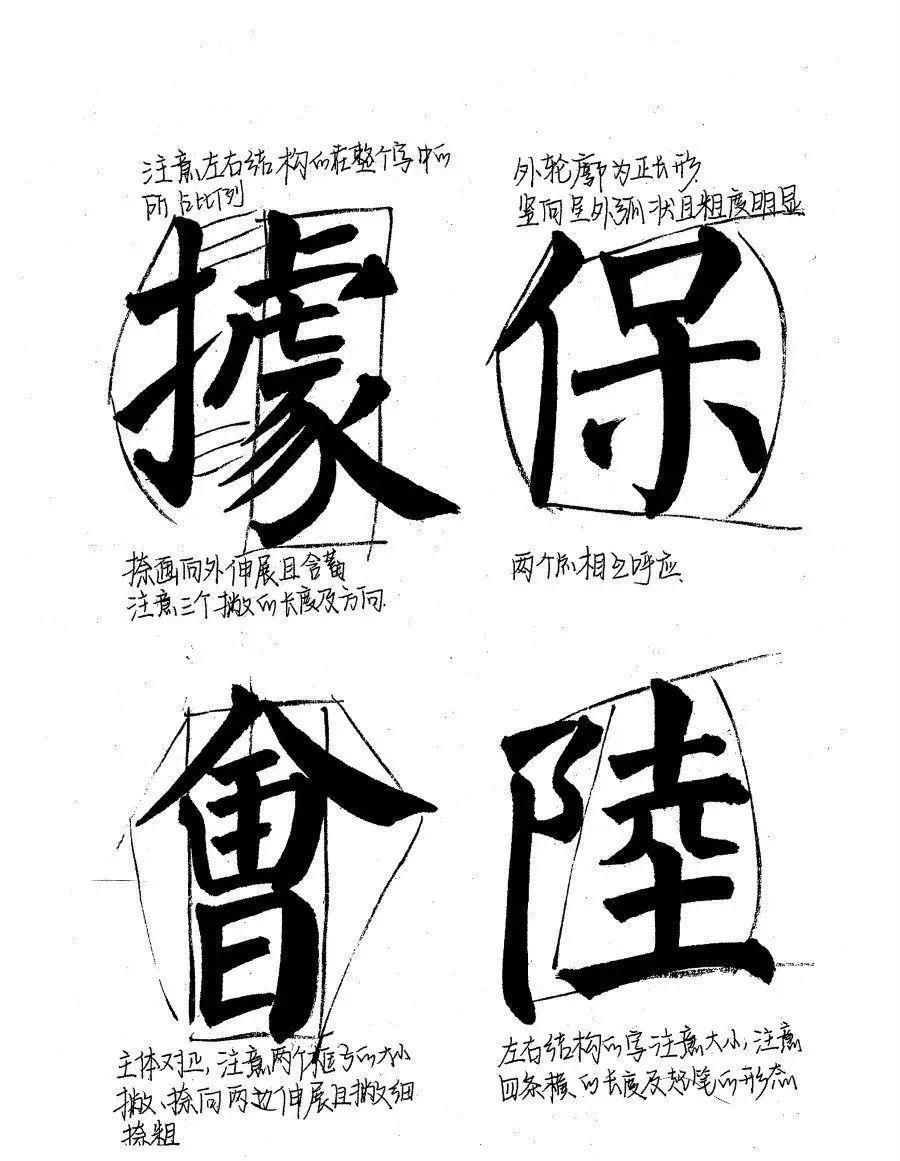 注意左右结构的在整个字中的
所占比例
據
捺画向外伸展且含蓄
注意三个撇的长度及方向.
外轮廓为正长形.
竖向呈外弧状且粗度明显
保
两个点相互呼应
會
主体对正,注意两个框字的大小
撇、捺向两边伸展且撇细
捺粗
陸
左右结构的字注意大小,注意
四条横的长度及起笔的形态